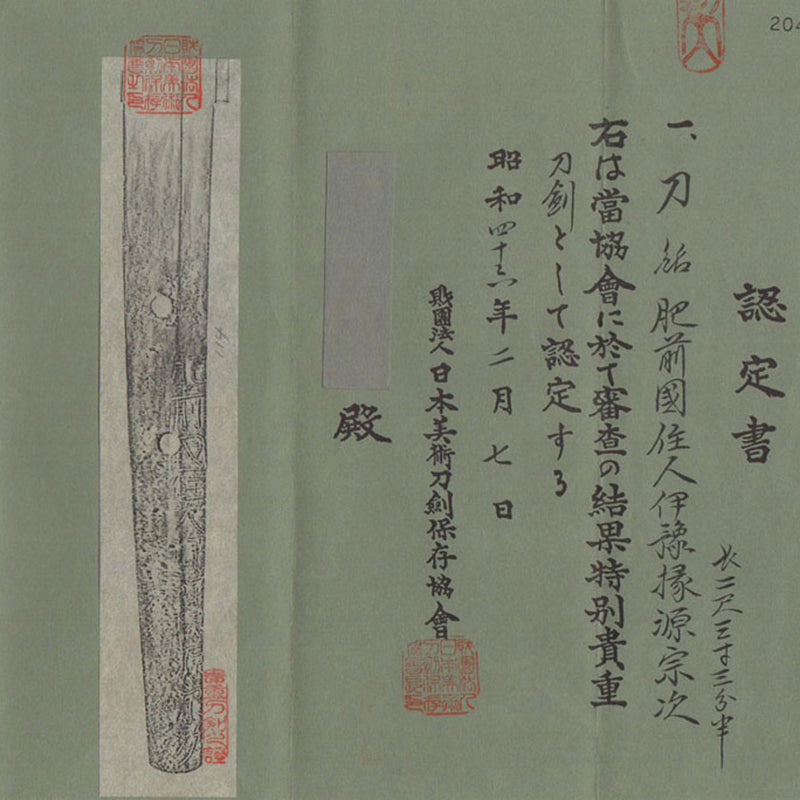 204
認定書
長二尺三寸三分半
一、刀 銘 肥前國住人伊豫掾源宗次
右は當協會に於て審査の結果特別貴重
刀劍として認定する
昭和四十六年二月七日
財團法人日本美術刀劍保存協會
殿